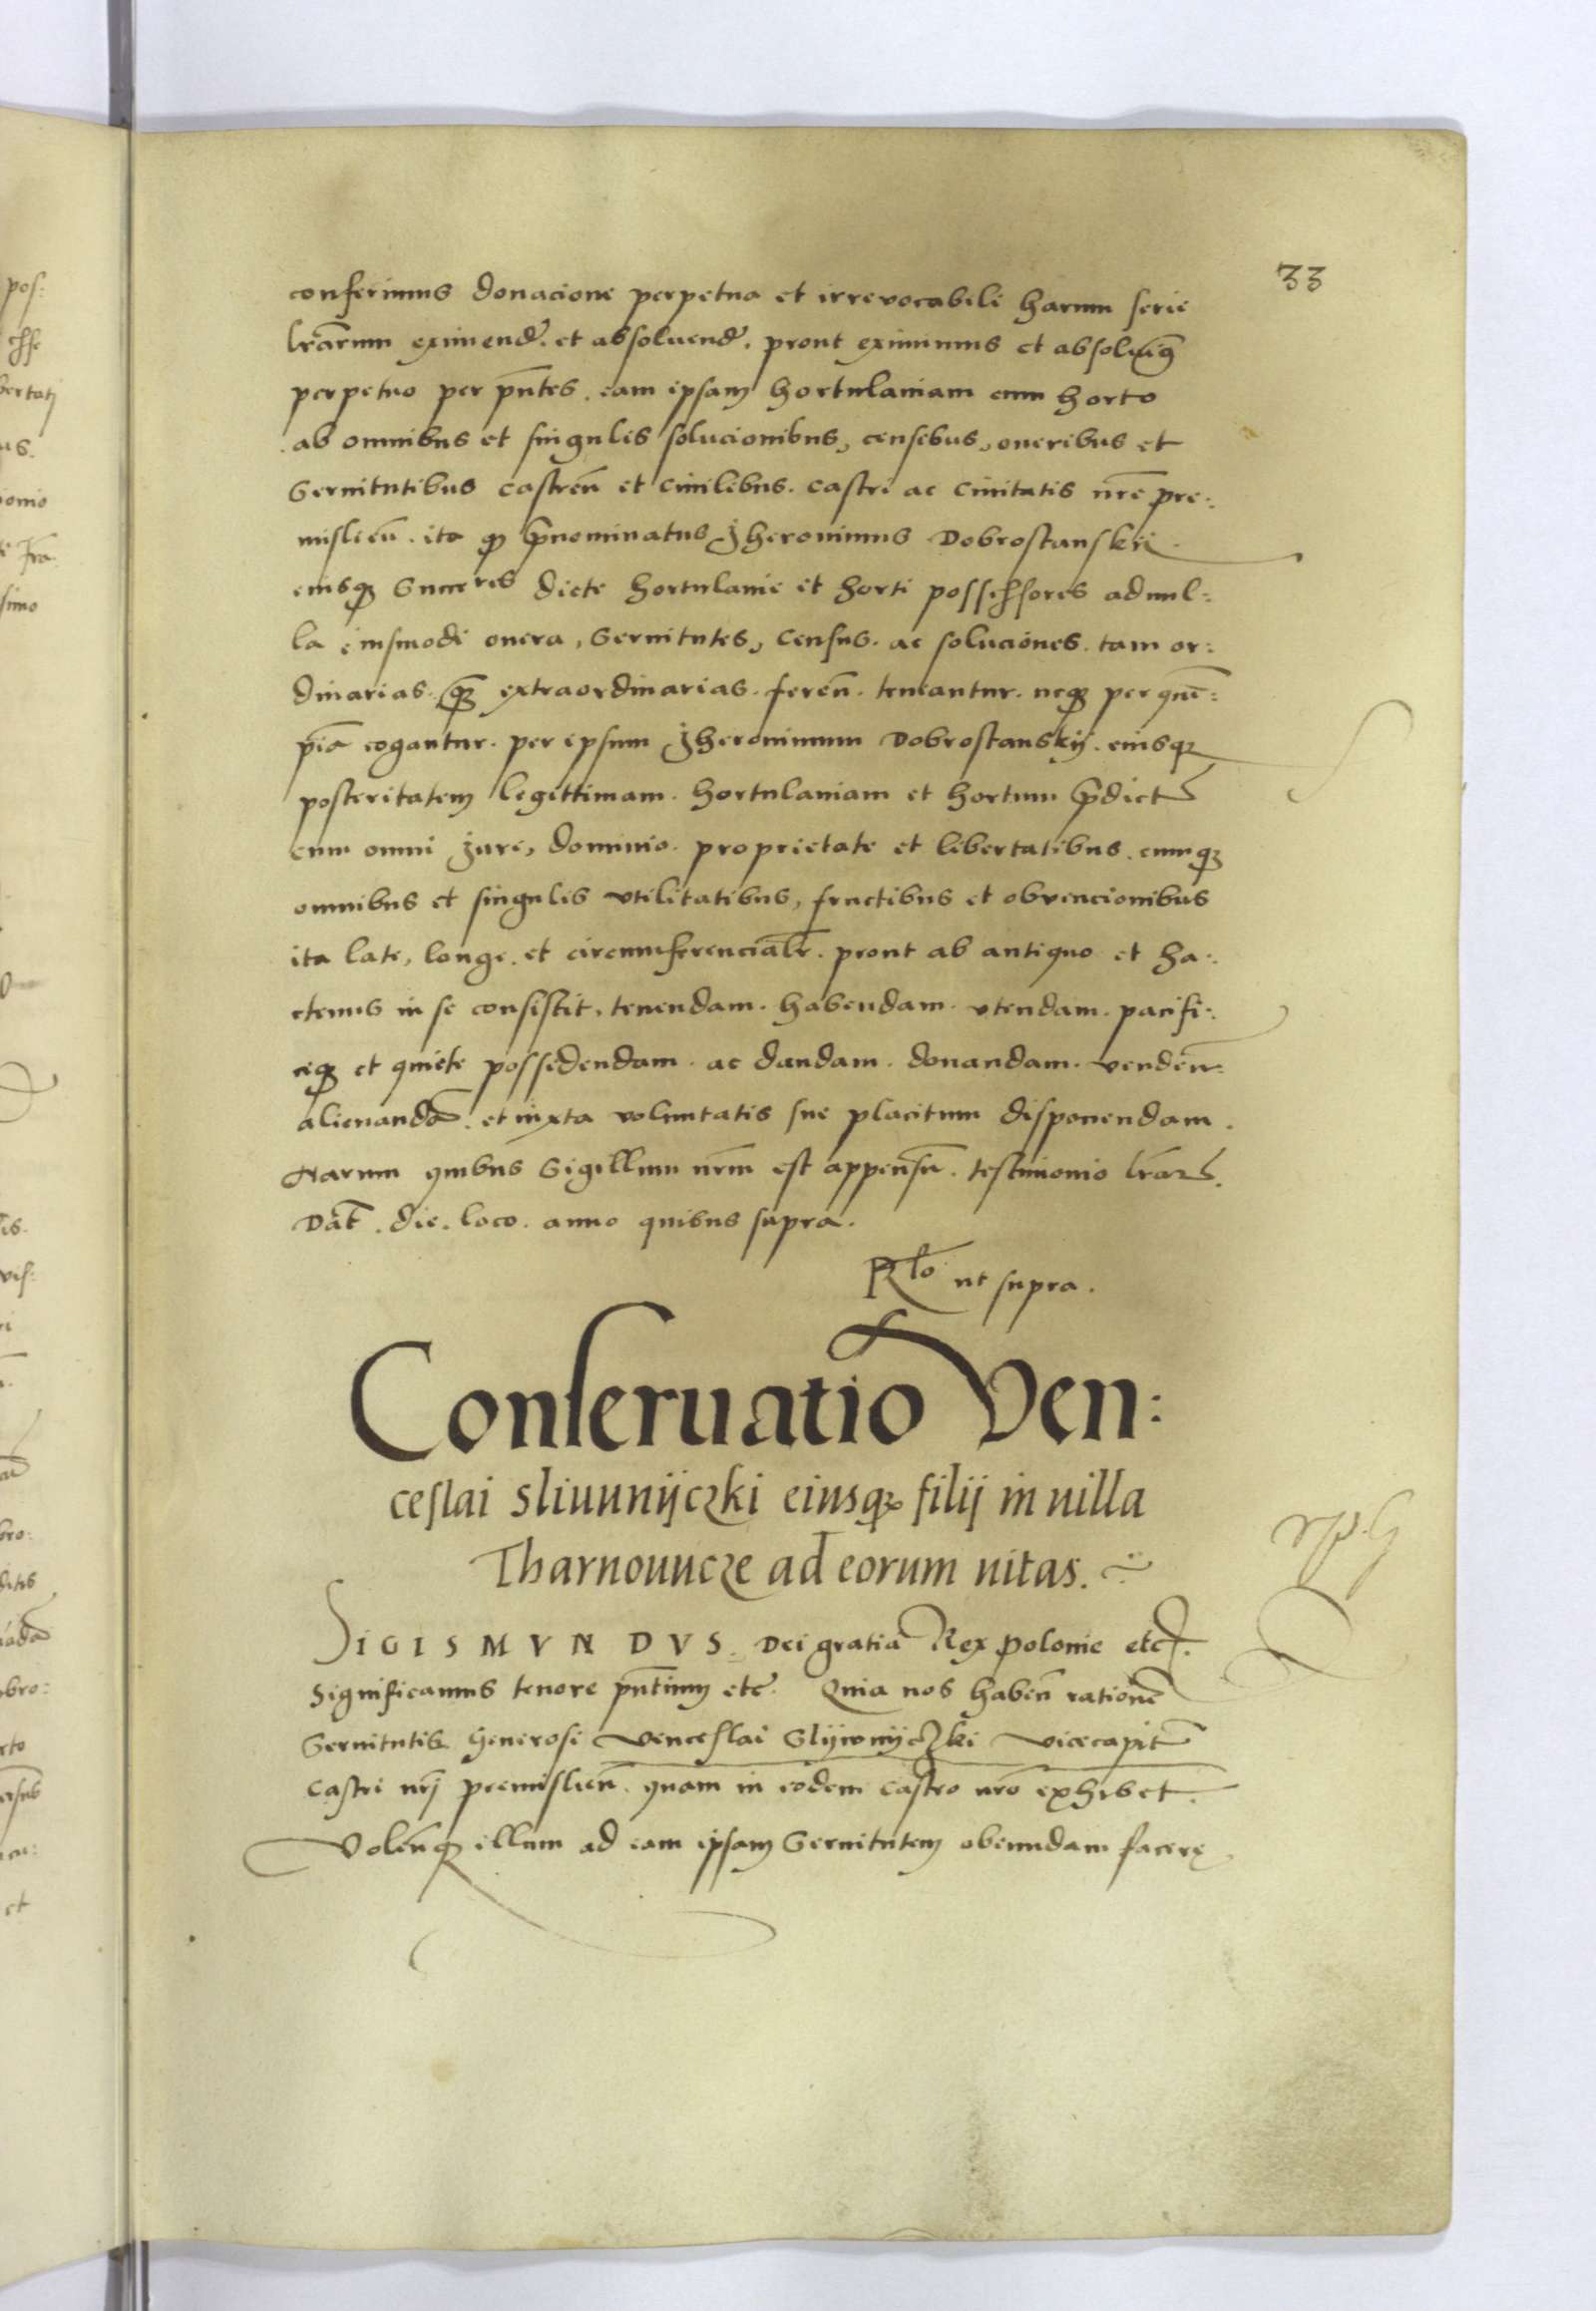 33
conferimus donacione perpetua et irrevocabili harum serie
lrarum eximend. et absoluend. prout eximimus et absoluimꝰ
perpetuo per pntes. eam ipsam hortulaniam cum horto
ab omnibus et singulis solucionibus, censibus, oneribus et
Seruitutibus castren et ciuilibus. castri ac ciuitatis nre pre:
mislien. ita ꝙ prenominatus Jheronimus Dobrostanski
eiusqꝫ Succeres dicte hortulanie et horti possessores ad nul:
la eiusmodi onera, Seruitutes, Census. ac soluciones. tam or:
dinarias. qꝫ extraordinarias. feren. teneantur. neqꝫ per quem:
piam cogantur. per ipsum Jheronimum Dobrostanskij. eiusqꝫ
posteritatem legittimam. hortulaniam et hortum predict
cum omni Jure, dominio. proprietate et libertatibus. cumqꝫ
omnibus et singulis vtilitatibus, fructibus et obvencionibus
ita late, longe. et circumferencialr. prout ab antiquo et ha:
ctenus in se consistit. tenendam. habendam. vtendam. pacifi:
ceqꝫ et quiete possidendam. ac dandam. donandam. venden:
alienanda. et iuxta voluntatis sue placitum disponendam.
Harum quibus Sigillum nrm est appensu. testimonio lrarꝫ.
Dat. die. loco. anno quibus supra.
Rlo ut supra.
Conseruatio Ven:
ceslai Sliuunijczki eiusqꝫ filij in uilla
Tharnouucze ad eorum uitas.
SIGISMVNDVS. Dei gratia Rex Polonie etc.
Significamus tenore pntium etc. Quia nos haben ratione
Seruitutis Generosi Venceslai Slijwnijczki vicecapit
castri nrj premislien. quam in eodem castro nro exhibet.
Volenqꝫ illum ad eam ipsam Seruitutem obeundam facere